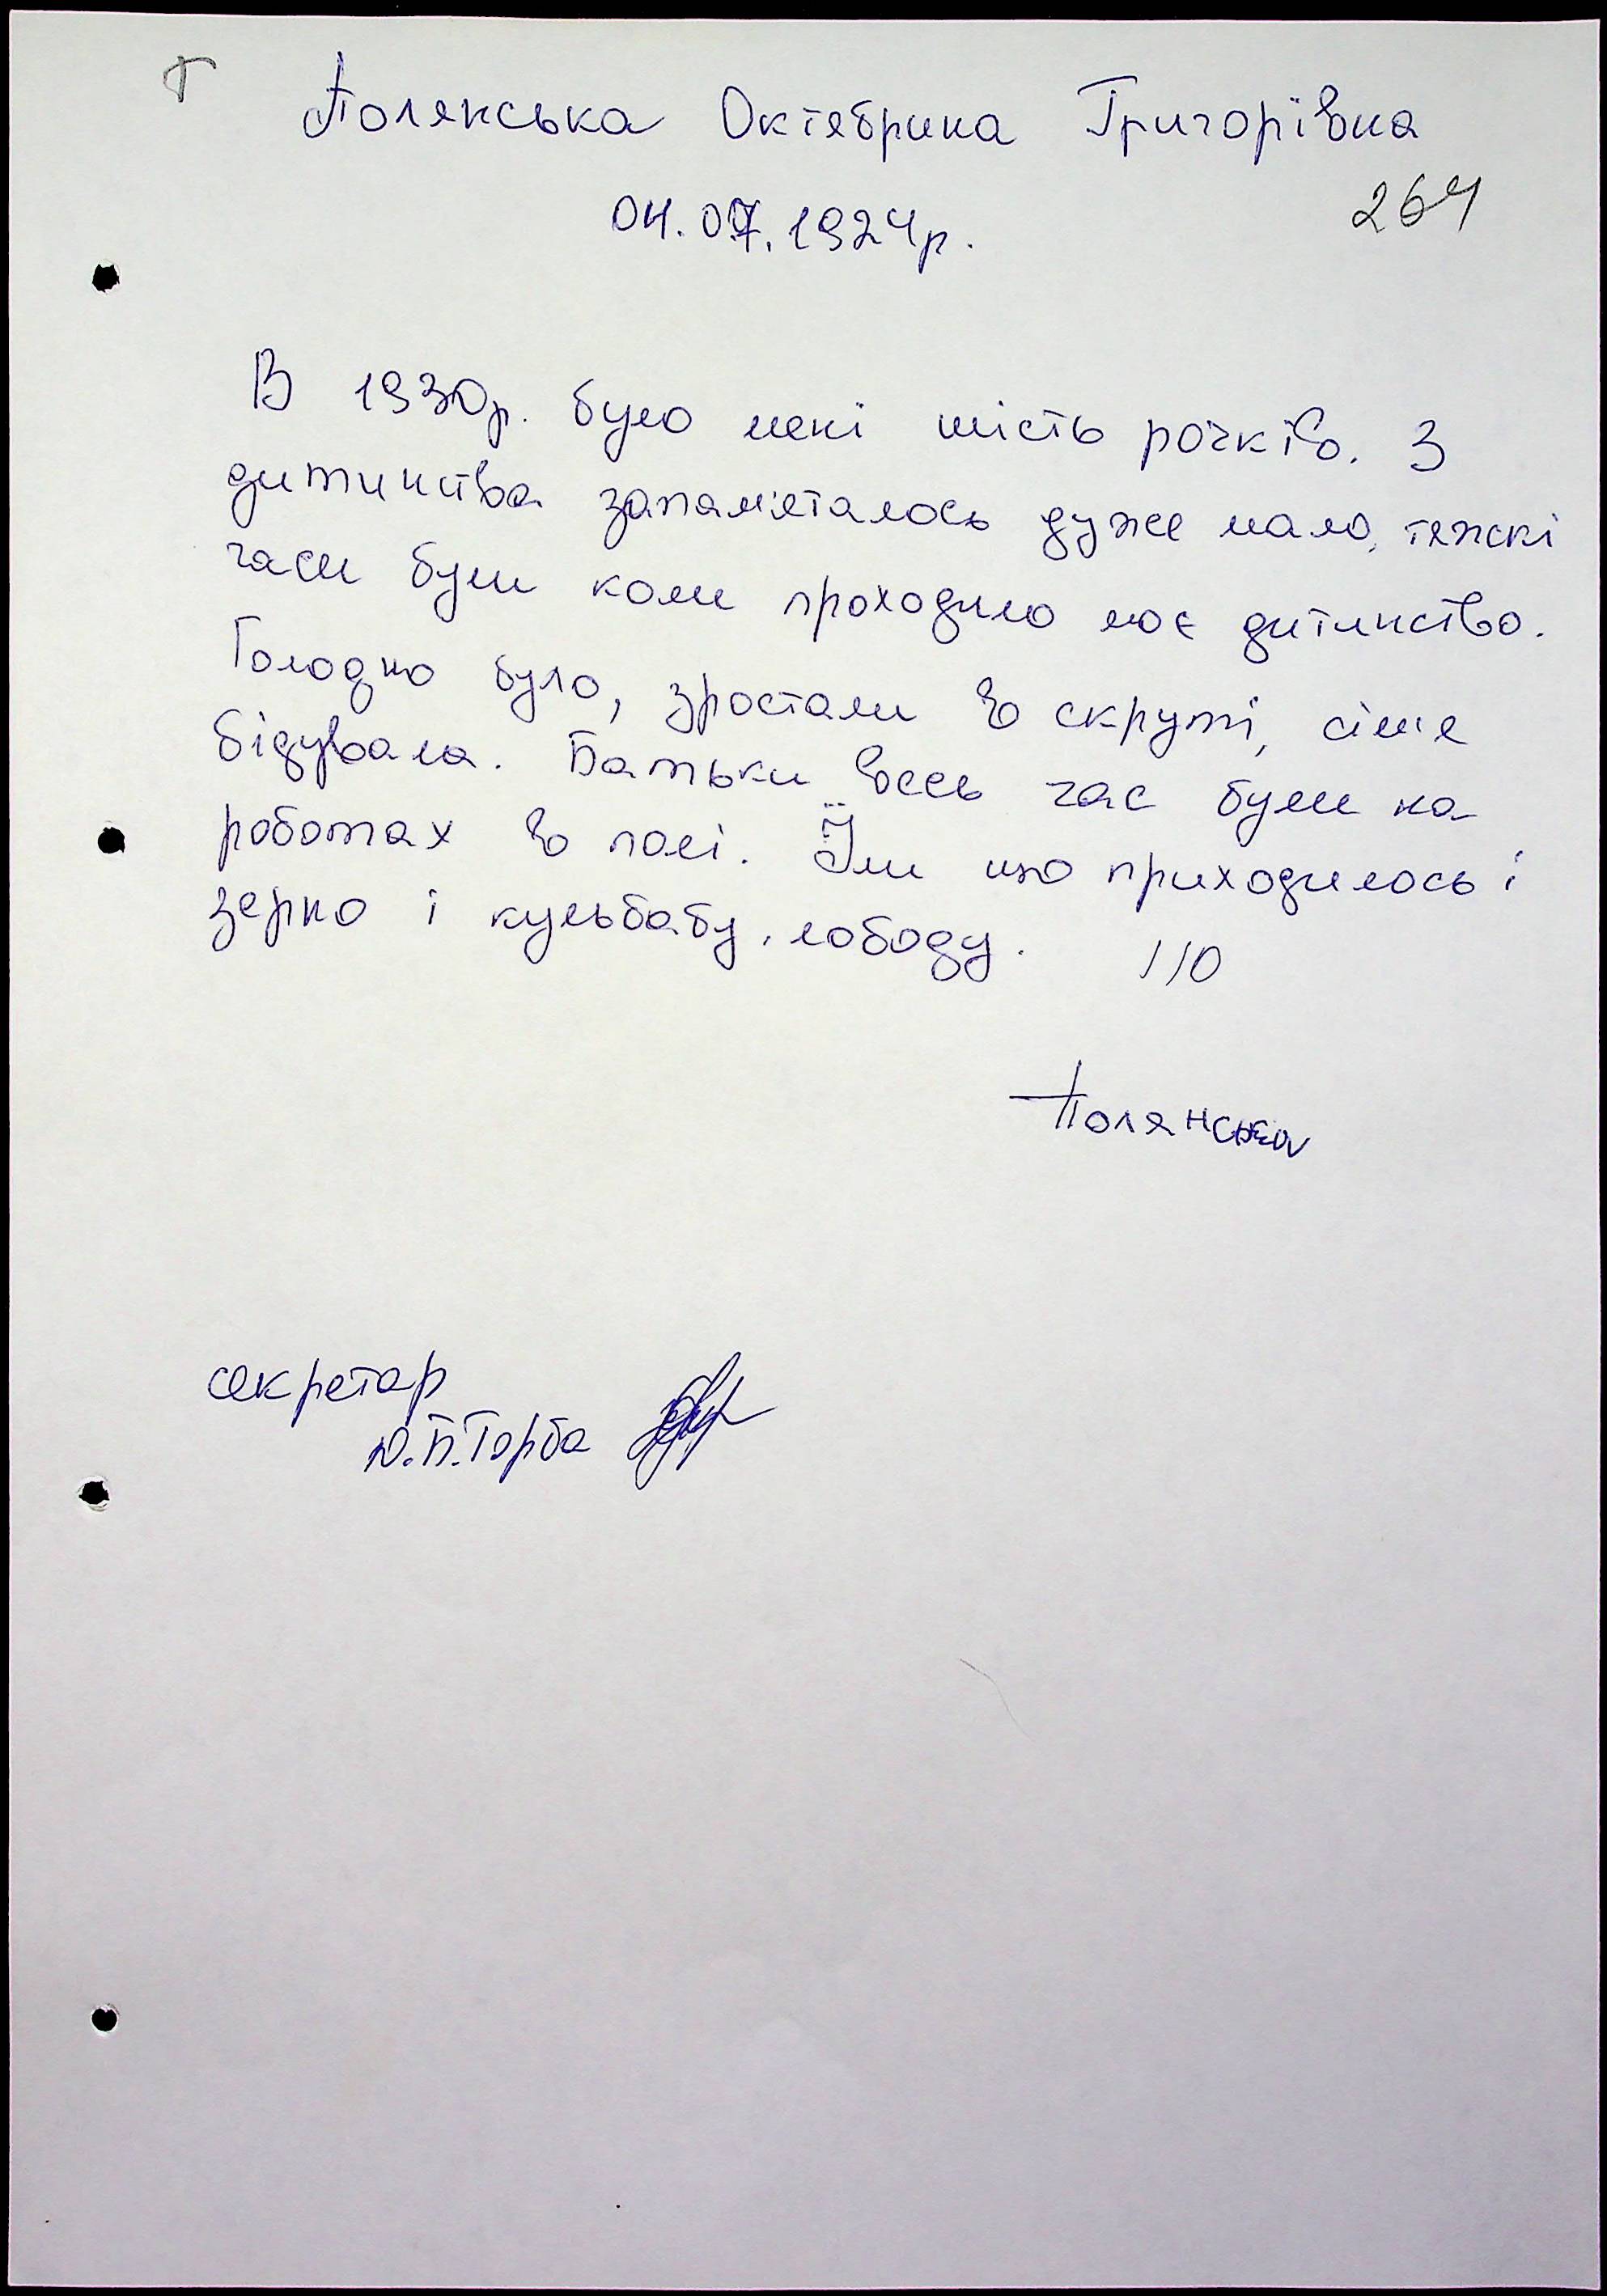 Г
Полянська Октябрина Григорівна
264
04.07.1924р.
В 1930р. було мені шість рочків. З
дитинства запам'яталось дуже мало, тяжкі
часи були коли проходило моє дитинство.
Голодно було, зростали в скруті, сім'я
бідувала. Батьки весь час були на
роботах в полі. Їли що приходилось і
зерно і кульбабу, лободу.
110
Полянська
секретар
Ю.Б.Горба